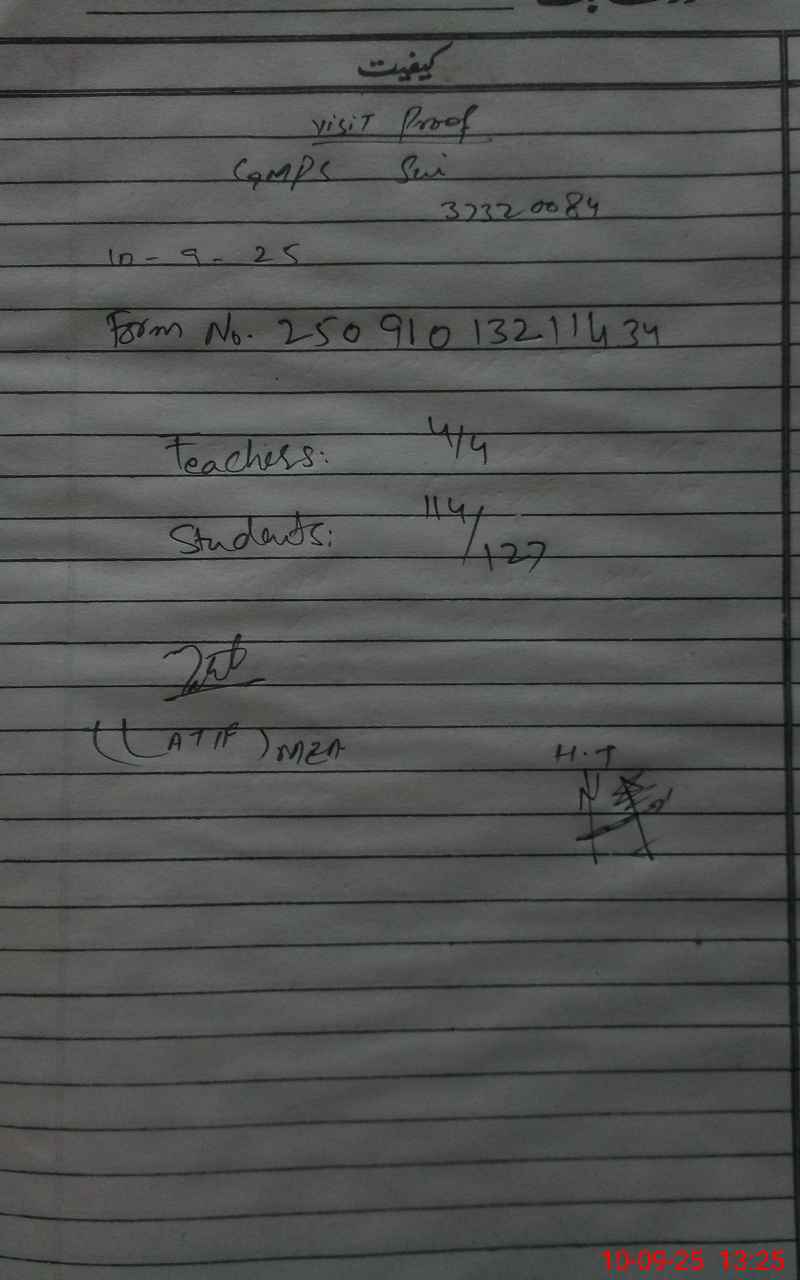 کیفیت
Visit Proof
GGMPS Sui
37320084
10-9-25
Form No. 25091013211434
Teachers: 4/4
Students: 114/127
(LATIF) MEA
H.T
10-09-25 13:25